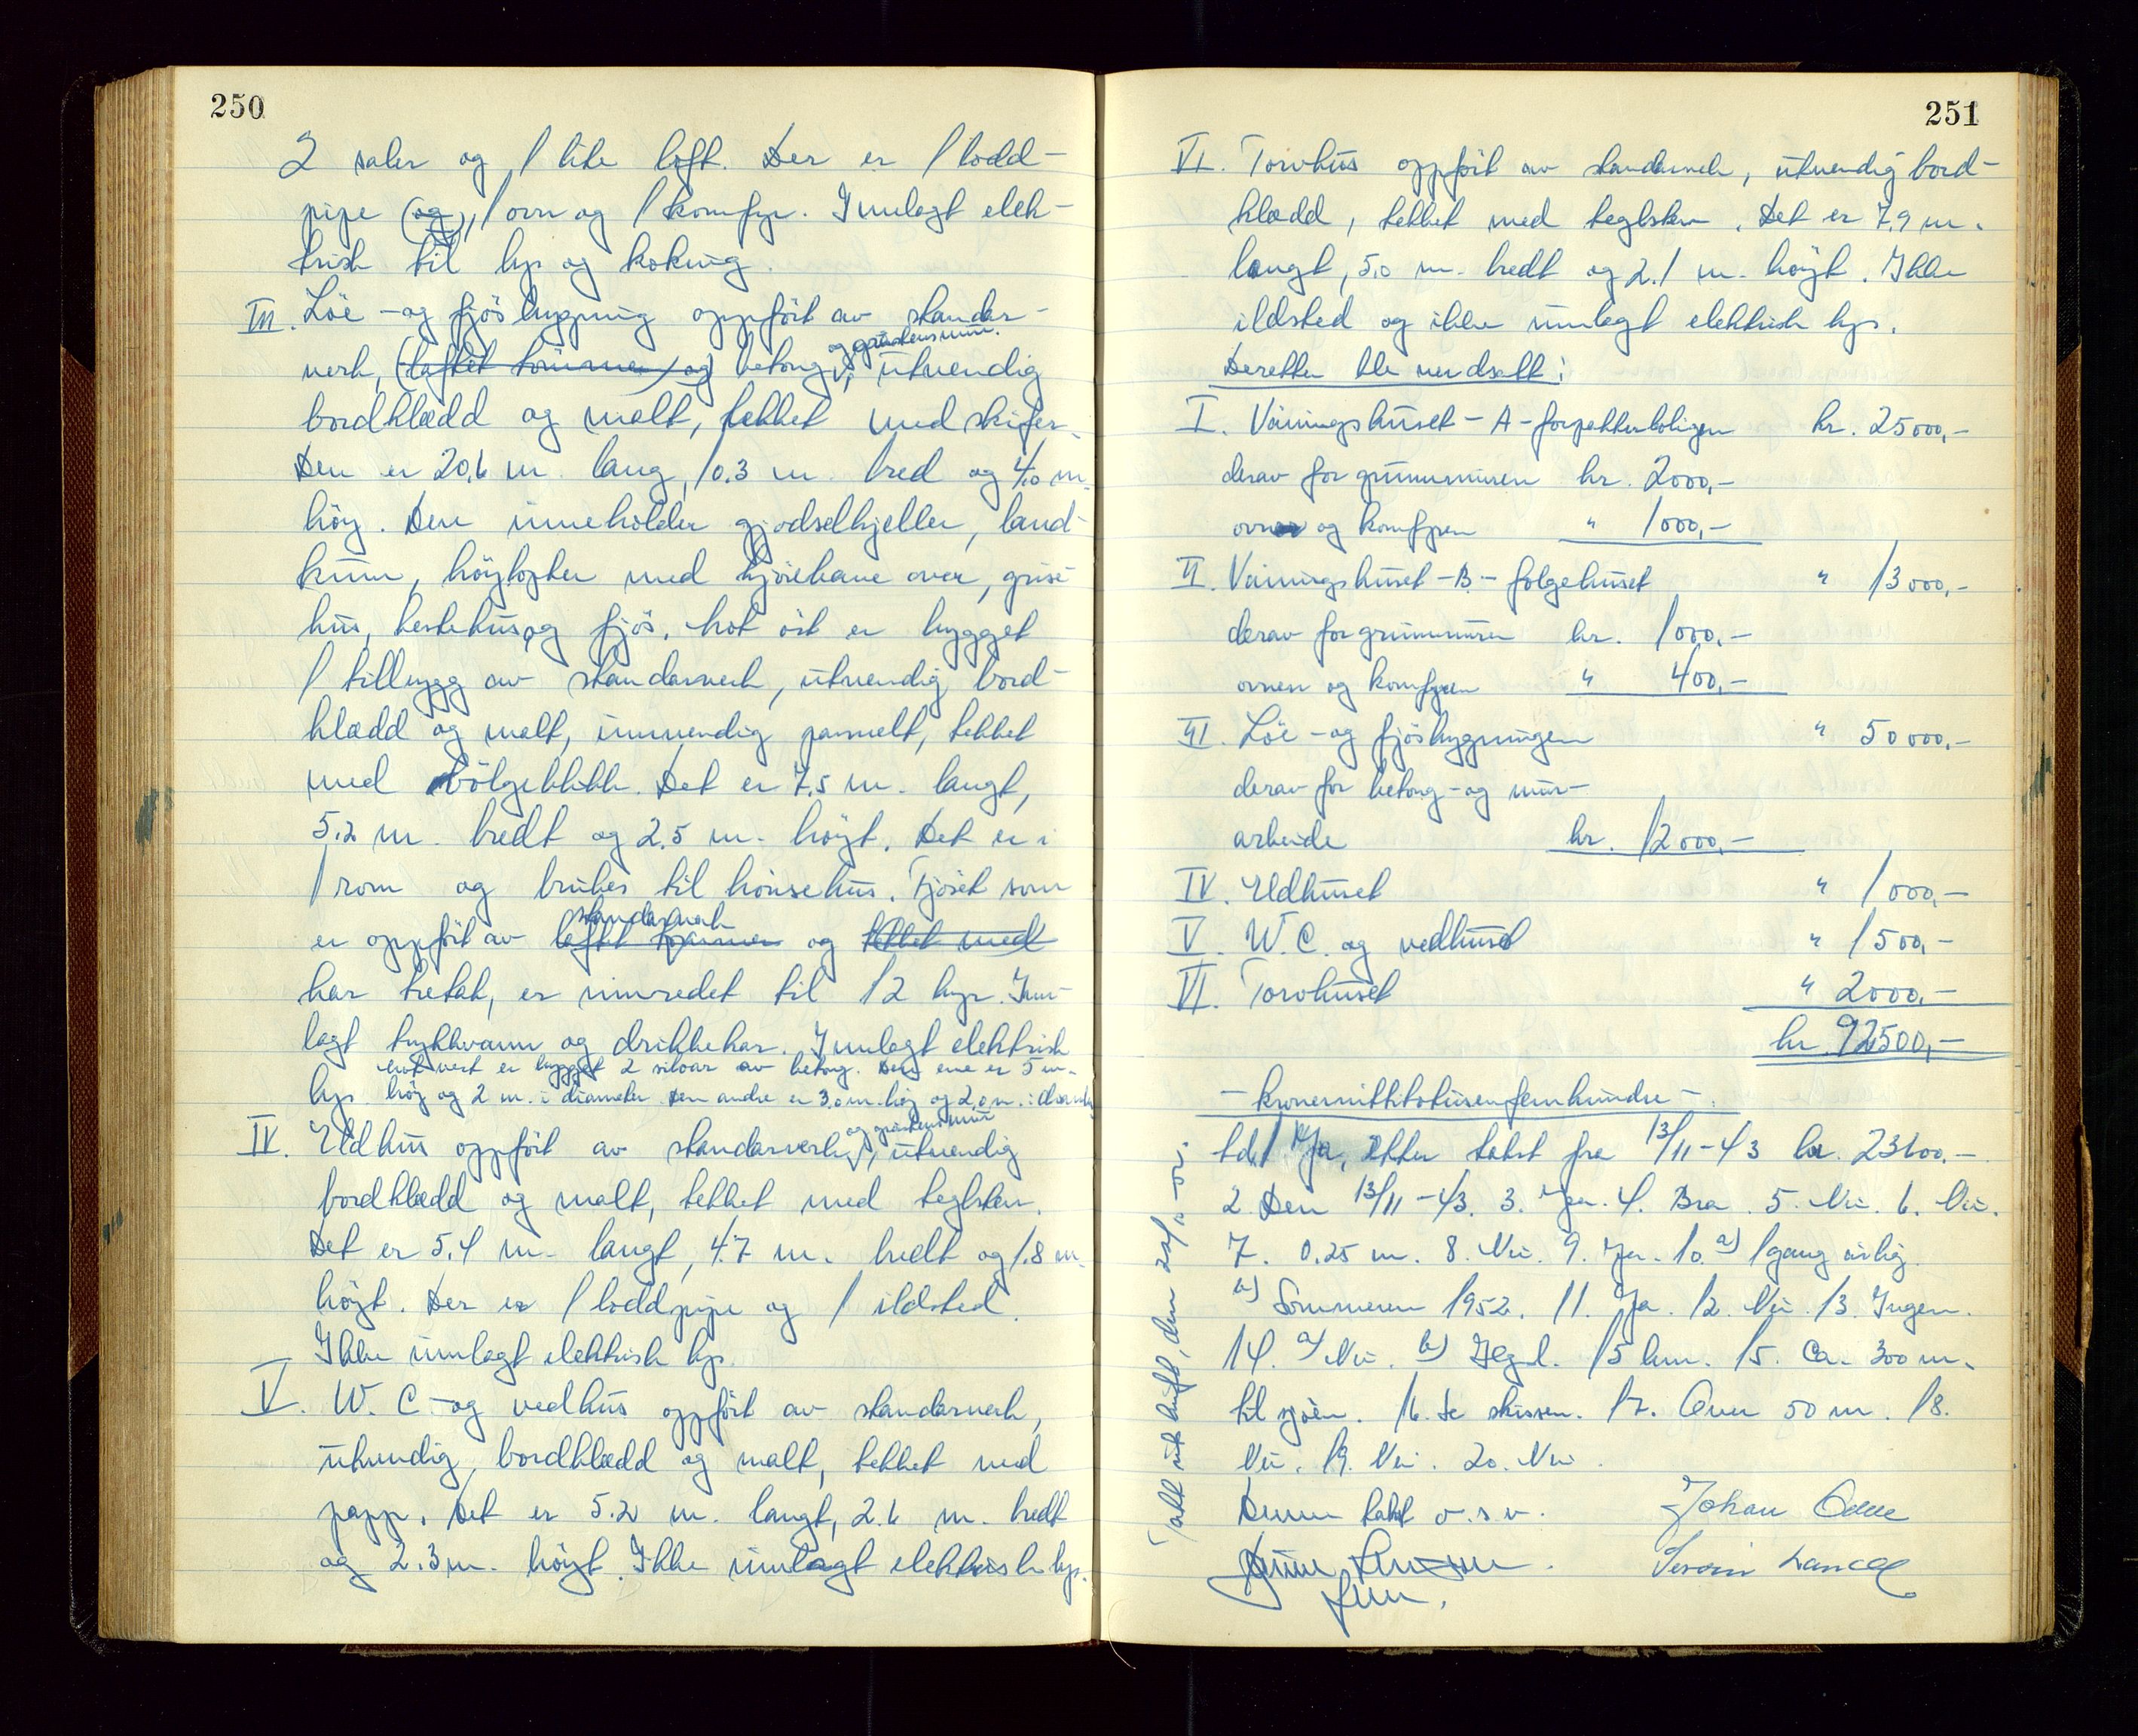 250
2 saler og 1 lite loft. Der er 1 lodd-
pipe (og), 1 ovn og 1 komfyr. Innlagt elek-
trisk til lys og koking.
III. Löe - og fjösbygning oppfört av stander-
og gråstensmur.
verk, (laftet tömmer og) betong, utvendig
bordklædd og malt, tekket med skifer.
Den er 20,6 m. lang, 10.3 m. bred og 4,0 m.
höy. Den inneholder gjödselkjeller, land-
kum, höytopter med kjörebane over, grise-
hus, hestehus og fjös. Mot öst er bygget
1 tilbygg av standerverk, utvendig bord-
klædd og malt, innvendig panelt, tekket
med bölgeblikk. Det er 7,5 m. langt,
5,2 m. bredt og 2,5 m. höyt. Det er i
1 rom og brukes til hönsehus. Fjöset som
standerverk
er oppfört av laftet tömmer og tekket med
har tretak, er innredet til 12 kyr. Inn-
lagt trykkvann og drikkekar. Innlagt elektrisk
Mot vest er bygget 2 siloar av betong. Den ene er 5 m.
lys. höy og 2 m. i diameter. Den andre er 3,0 m. höy og 2,0 m. i diameter
og gråstensmur
IV. Eldhus oppfört av standerverk, utvendig
bordklædd og malt, tekket med teglsten.
Det er 5,4 m. langt, 4.7 m. bredt og 1.8 m.
höyt. Der er 1 loddpipe og 1 ildsted.
Ikke innlagt elektrisk lys.
V. W. C. - og vedhus oppfört av standerverk,
utvendig bordklædd og malt, tekket med
papp. Det er 5.2 m. langt, 2.6 m. bredt
og 2.3 m. höyt. Ikke innlagt elektrisk lys.
251
VI. Torvhus oppfört av standerverk, utvendig bord-
klædd, tekket med teglsten. Det er 7,9 m.
langt, 5,0 m. bredt og 2.1 m. höyt. Ikke
ildsted og ikke innlagt elektrisk lys.
Deretter ble verdsatt:
I. Våningshuset - A - forpakterboligen kr. 25000,-
derav for grunnmuren kr. 2000,-
ovner og komfyren " 1000,-
II. Våningshuset - B - fölgehuset " 13000,-
derav for grunnmuren kr. 1000,-
ovnen og komfyren " 400,-
III. Löe - og fjösbygningen " 50000,-
derav for betong - og mur-
arbeide kr. 12000,-
IV. Eldhuset " 1000,-
V. W. C. og vedhuset " 1500,-
VI. Torvhuset " 2000,-
kr. 92500,-
- kronernittitotusenfemhundre -.
1. Ja, etter takst fra 13/11-43 kr. 23600.-
2. Den 13/11-43. 3. Ja. 4. Bra. 5. Nei. 6. Nei.
7. 0,25 m. 8. Nei. 9. Ja. 10. a) 1 gang årlig.
b) Sommeren 1952. 11. Ja. 12. Nei. 13. Ingen.
14. a) Nei. b) 15 km. 15. Ca. 300 m.
til sjöen. 16. Se skissen. 17. Over 50 m. 18.
Nei. 19. Nei. 20. Nei.
Denne takst o.s.v. Johan